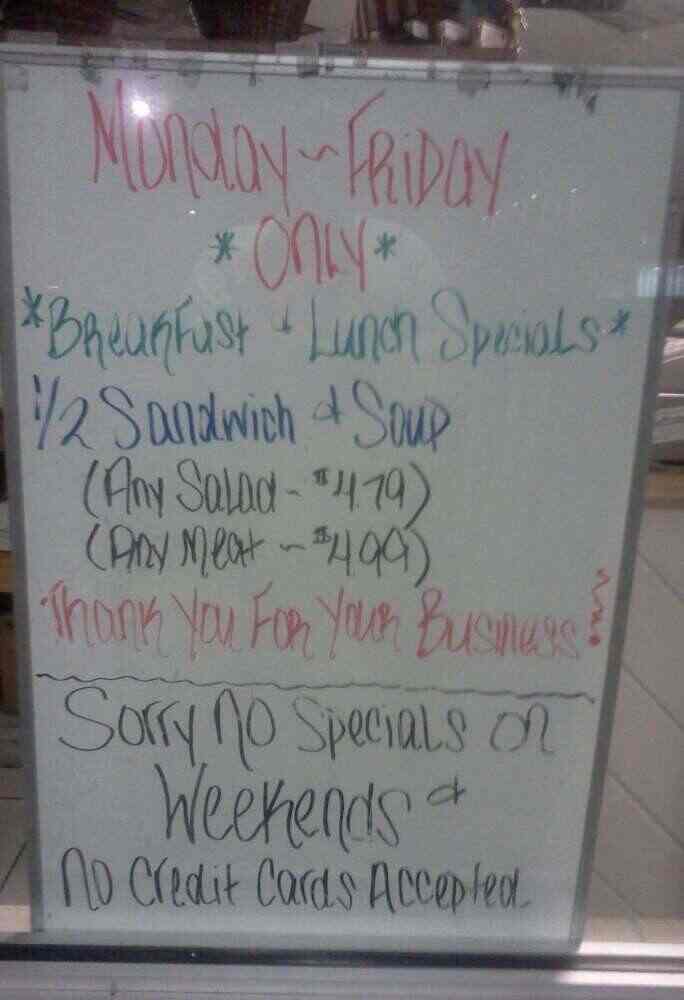 Monday ~ Friday
* Only *
* Breakfast & Lunch Specials *
1/2 Sandwich & Soup
(Any Salad - $4.79)
(Any Meat ~ $4.99)
Thank You For Your Business!
Sorry No Specials on
Weekends &
No Credit Cards Accepted